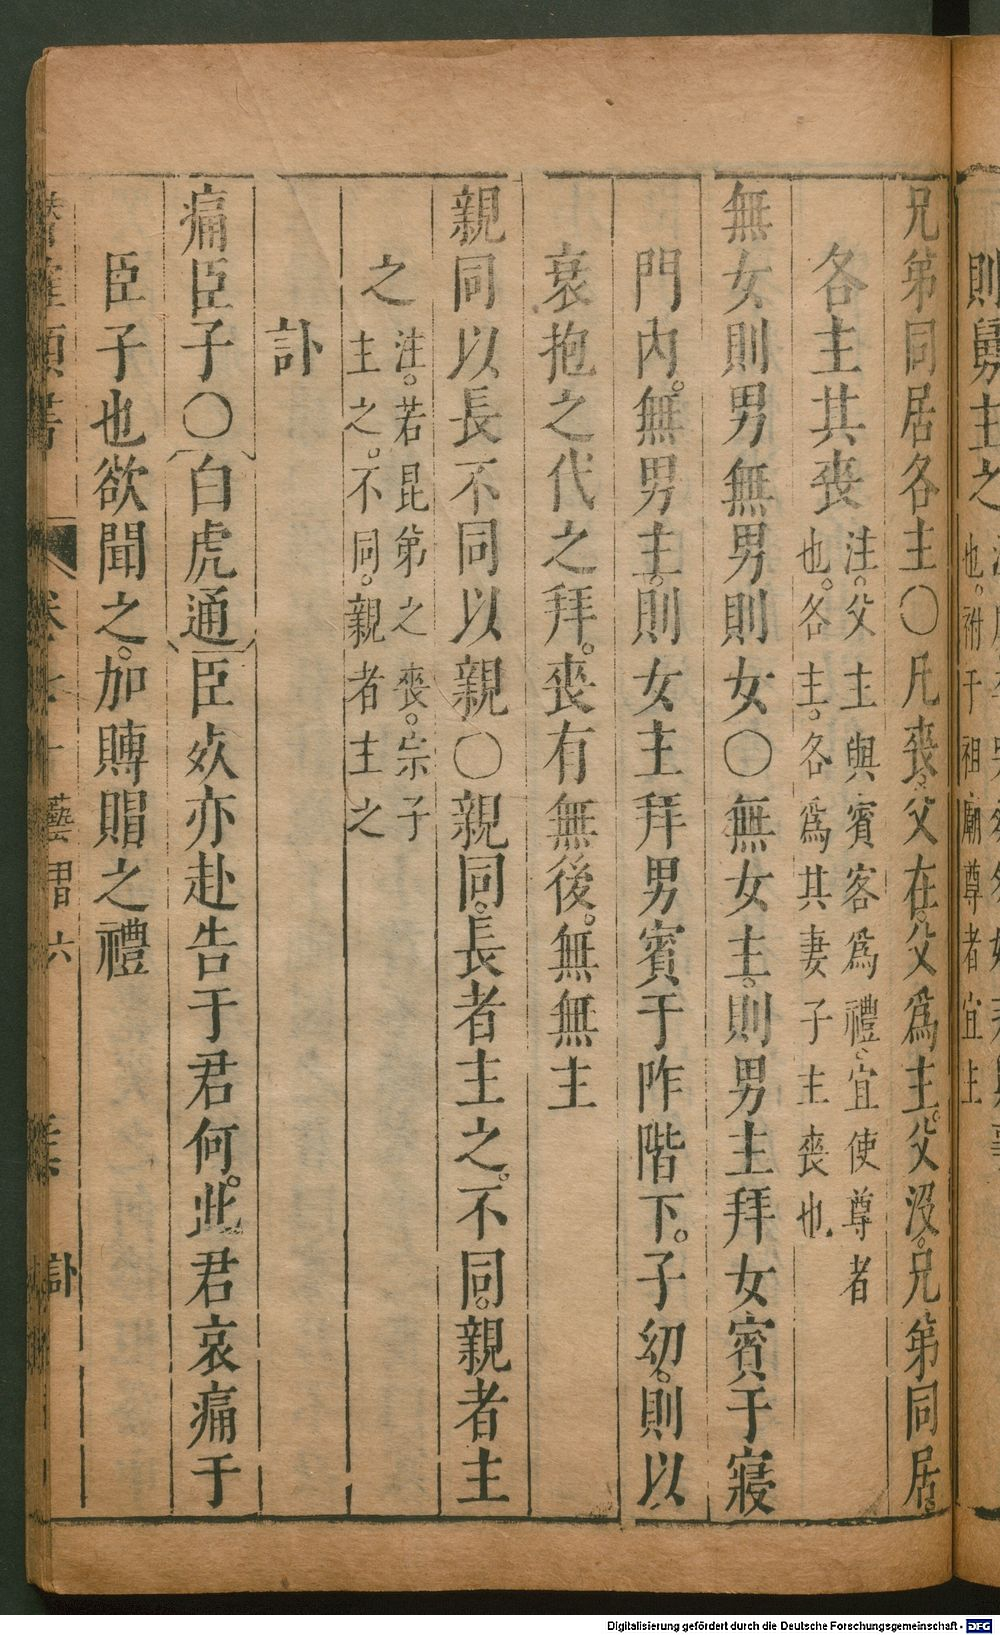 則舅主之
也。祔于祖廟尊者宜主
兄第同居各主〇凡喪父在。父爲主。父沒。兄第同居。
各主其喪
注。父主與賓客爲禮。宜使尊者
也。各主。各爲其妻子主喪也。
無女則男無男則女〇無女主。則男主拜女賓于寢
門內。無男主。則女主拜男賓于阼階下。子幼。則以
衰抱之代之拜。喪有無後。無無主
親同以長不同以親〇親同。長者主之。不同。親者主
之
注。若昆第之喪。宗子
主之。不同。親者主之
訃
痛臣子〇白虎通臣𣦸亦赴告于君何。此君哀痛于
臣子也欲聞之。加賻賵之禮
卷
藝習六
訃
Digitalisierung gefördert durch die Deutsche Forschungsgemeinschaft - DFG